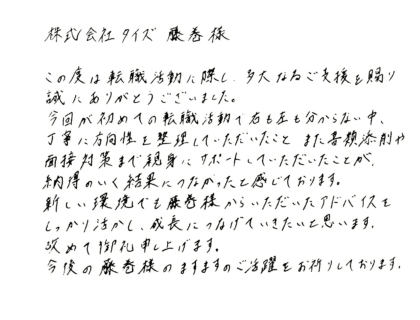 株式会社タイズ 藤巻様
この度は転職活動に際し、多大なるご支援を賜り
誠にありがとうございました。
今回が初めての転職活動で右も左も分からない中、
丁寧に方向性を整理していただいたこと また書類添削や
面接対策まで親身にサポートしていただいたことが、
納得のいく結果につながったと感じております。
新しい環境でも藤巻様からいただいたアドバイスを
しっかり活かし、成長につなげていきたいと思います。
改めて御礼申し上げます。
今後の藤巻様のますますのご活躍をお祈りしております。